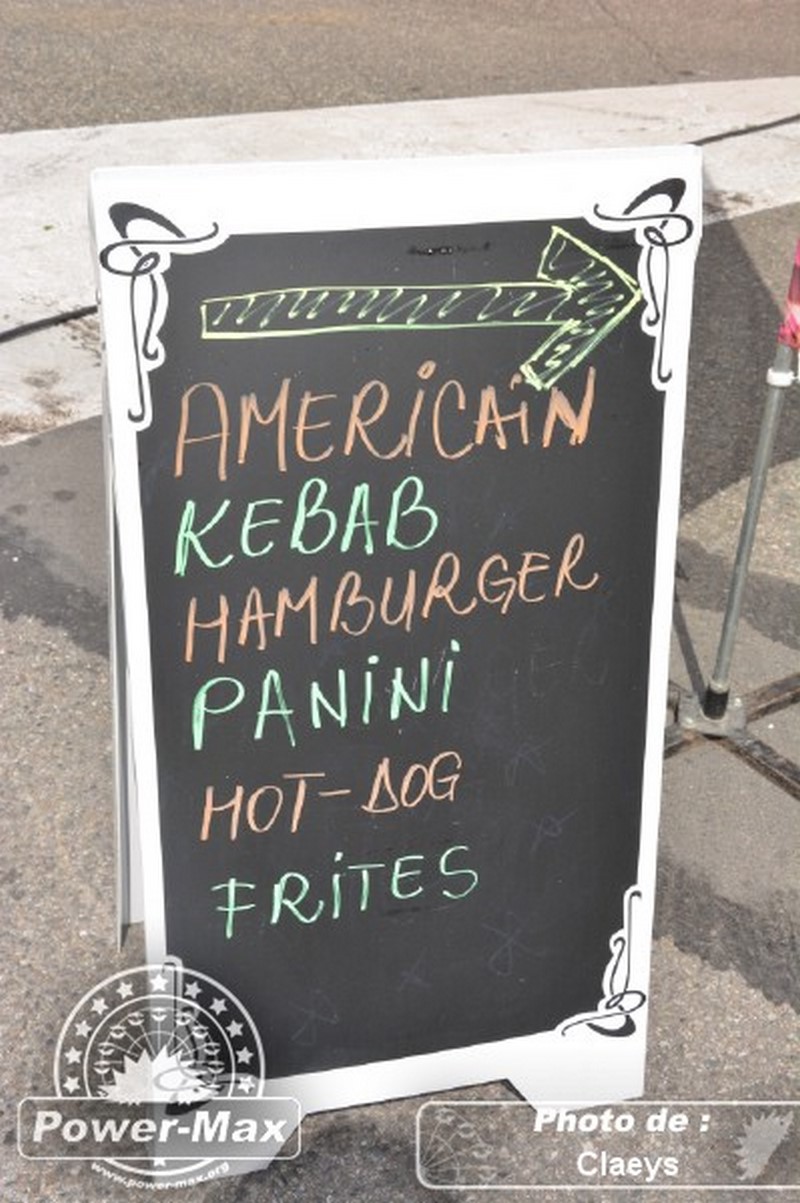 AMERICAIN
KEBAB
HAMBURGER
PANINI
HOT-DOG
FRITES
Power-Max
www.power-max.org
Photo de :
Claeys